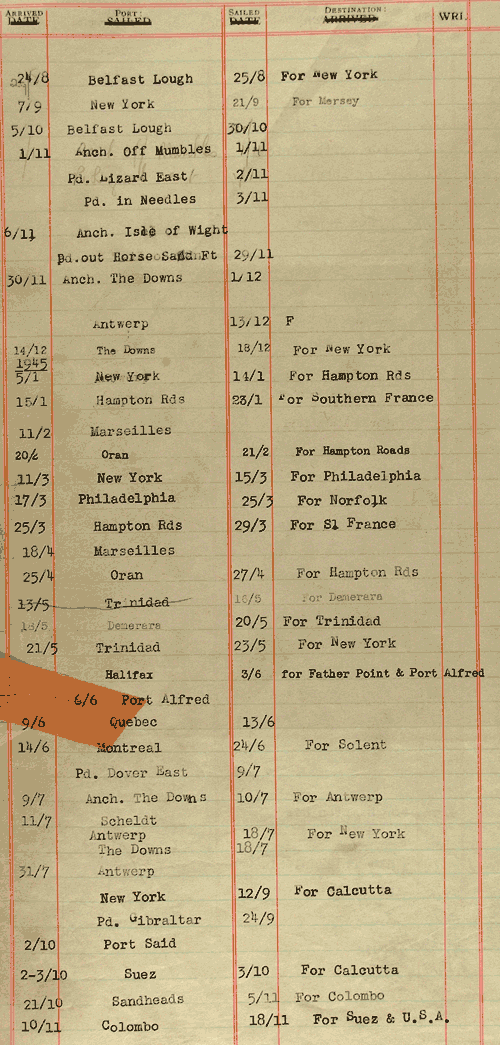 ARRIVED PORT: SAILED DESTINATION: WRI.
DATE SAILED DATE ARRIVED
24/8 Belfast Lough 25/8 For New York
7/9 New York 21/9 For Mersey
5/10 Belfast Lough 30/10
1/11 Anch. Off Mumbles 1/11
Pd. Lizard East 2/11
Pd. in Needles 3/11
6/11 Anch. Isle of Wight
pd.out Horse Sand Ft 29/11
30/11 Anch. The Downs 1/12
Antwerp 13/12 F
14/12 The Downs 18/12 For New York
1945
5/1 New York 14/1 For Hampton Rds
15/1 Hampton Rds 23/1 For Southern France
11/2 Marseilles
Oran 21/2 For Hampton Roads
11/3 New York 15/3 For Philadelphia
17/3 Philadelphia 25/3 For Norfolk
25/3 Hampton Rds 29/3 For S1 France
18/4 Marseilles
25/4 Oran 27/4 For Hampton Rds
13/5 Trinidad 16/5 For Demerara
18/5 Demerara 20/5 For Trinidad
21/5 Trinidad 23/5 For New York
Halifax 3/6 for Father Point & Port Alfred
6/6 Port Alfred
9/6 Quebec 13/6
14/6 Montreal 24/6 For Solent
Pd. Dover East 9/7
9/7 Anch. The Downs 10/7 For Antwerp
11/7 Scheldt
Antwerp 18/7 For New York
The Downs 18/7
31/7 Antwerp
New York 12/9 For Calcutta
Pd. Gibraltar 24/9
2/10 Port Said
2-3/10 Suez 3/10 For Calcutta
21/10 Sandheads 5/11 For Colombo
10/11 Colombo 18/11 For Suez & U.S.A.